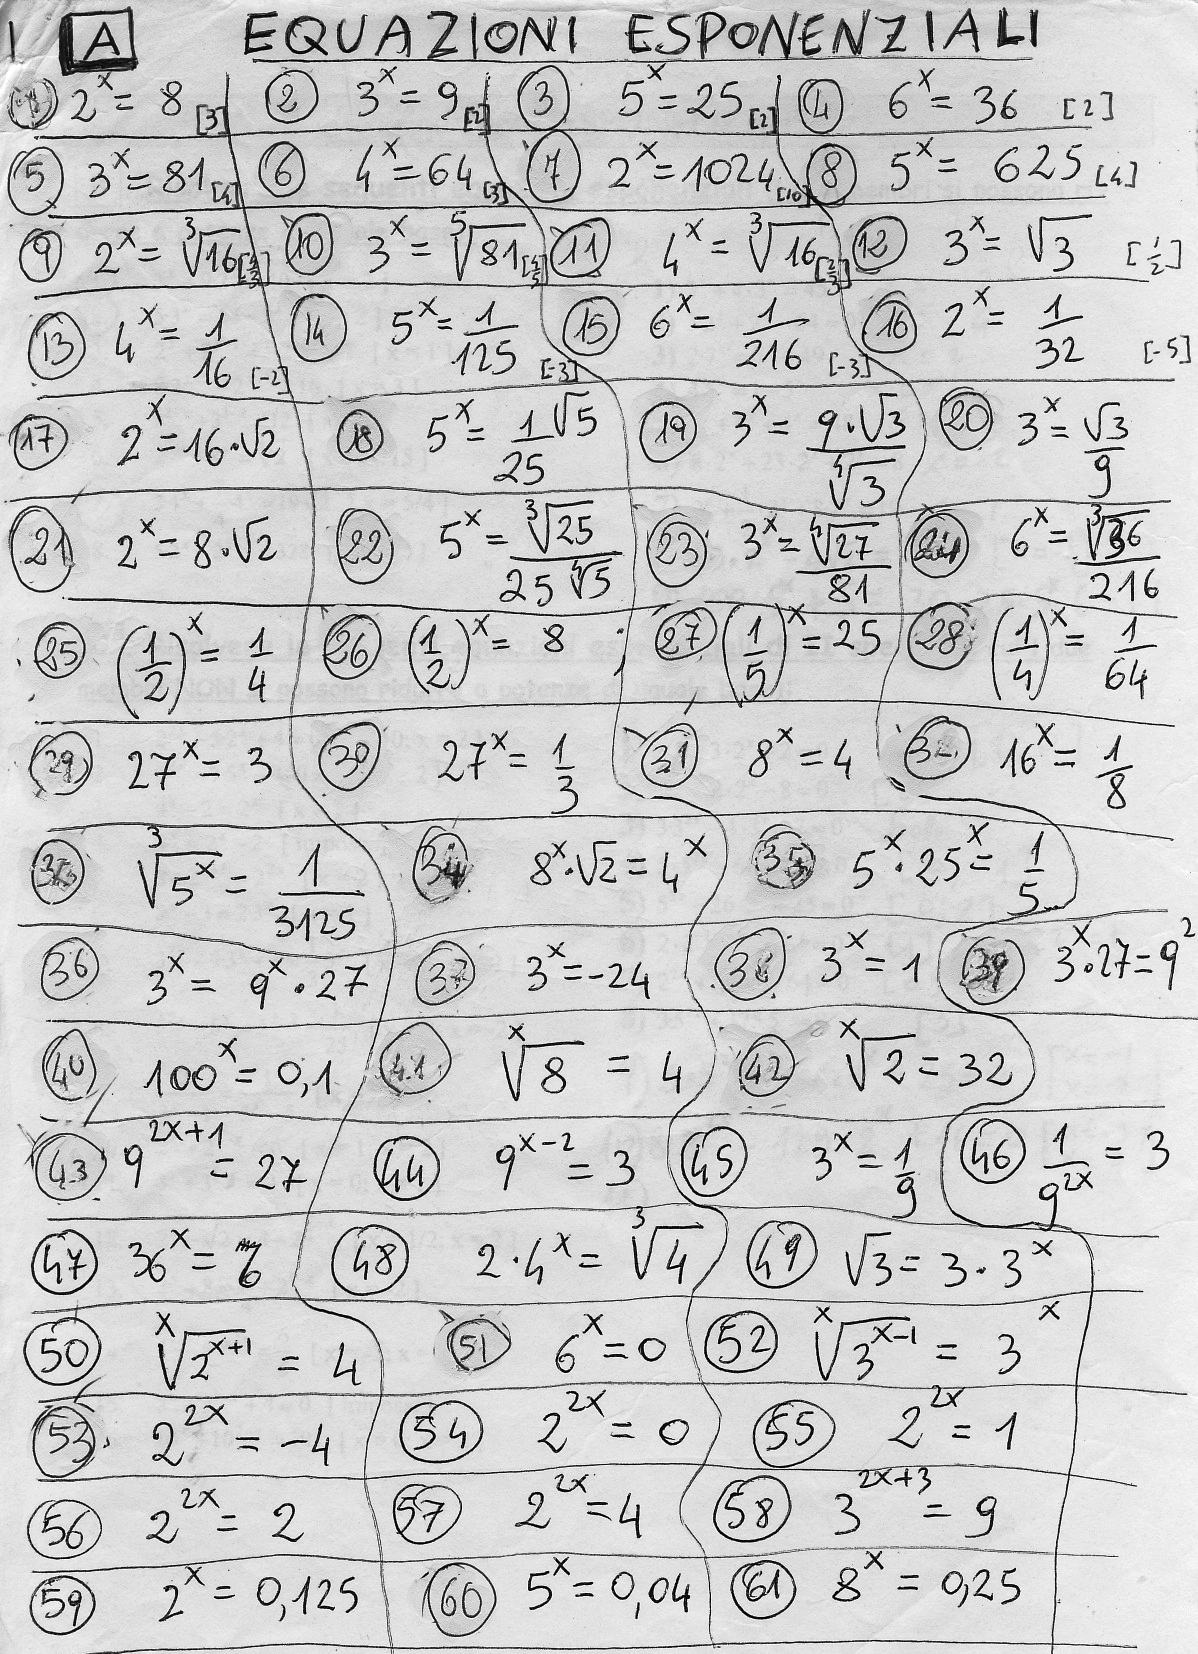 1 A EQUAZIONI ESPONENZIALI
1 2^x = 8 [3] 2 3^x = 9 [2] 3 5^x = 25 [2] 4 6^x = 36 [2]
5 3^x = 81 [4] 6 4^x = 64 [3] 7 2^x = 1024 [10] 8 5^x = 625 [4]
9 2^x = ∛16 [4/3] 10 3^x = ⁵√81 [4/5] 11 4^x = ∛16 [2/3] 12 3^x = √3 [1/2]
13 4^x = 1/16 [-2] 14 5^x = 1/125 [-3] 15 6^x = 1/216 [-3] 16 2^x = 1/32 [-5]
17 2^x = 16·√2 18 5^x = 1/25 √5 19 3^x = 9·√3/⁴√3 20 3^x = √3/9
21 2^x = 8·√2 22 5^x = ∛25/25 ⁴√5 23 3^x = ⁴√27/81 24 6^x = ∛36/216
25 (1/2)^x = 1/4 26 (1/2)^x = 8 27 (1/5)^x = 25 28 (1/4)^x = 1/64
29 27^x = 3 30 27^x = 1/3 31 8^x = 4 32 16^x = 1/8
33 ∛5^x = 1/3125 34 8^x·√2 = 4^x 35 5^x·25^x = 1/5
36 3^x = 9^x·27 37 3^x = -24 38 3^x = 1 39 3^x·27 = 9^2
40 100^x = 0,1 41 ˣ√8 = 4 42 ˣ√2 = 32
43 9^2x+1 = 27 44 9^x-2 = 3 45 3^x = 1/9 46 1/9^2x = 3
47 36^x = 6 48 2·4^x = ∛4 49 √3 = 3·3^x
50 ˣ√2^x+1 = 4 51 6^x = 0 52 ˣ√3^x-1 = 3^x
53 2^2x = -4 54 2^2x = 0 55 2^2x = 1
56 2^2x = 2 57 2^2x = 4 58 3^2x+3 = 9
59 2^x = 0,125 60 5^x = 0,04 61 8^x = 0,25